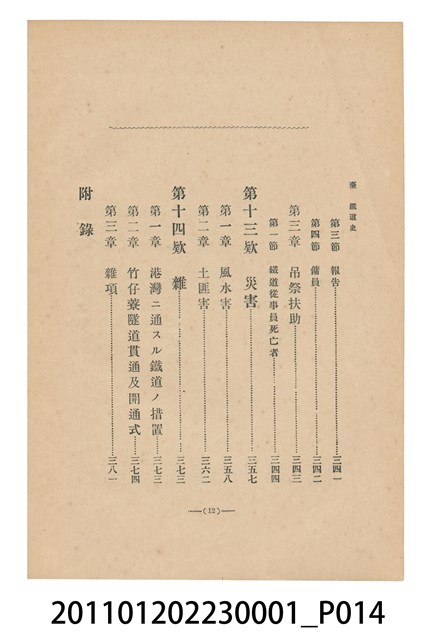 臺 鐵道史
第三節 報告 三四一
第四節 傭員 三四二
第三章 吊祭扶助 三四三
第一節 鐵道從事員死亡者 三四四
第十三欵 災害 三五七
第一章 風水害 三五八
第二章 土匪害 三六二
第十四欵 雜 三七三
第一章 港灣ニ通スル鐵道ノ措置 三七三
第二章 竹仔藔隧道貫通及開通式 三七四
第三章 雜項 三八一
附錄
—(12)—
201101202230001_P014